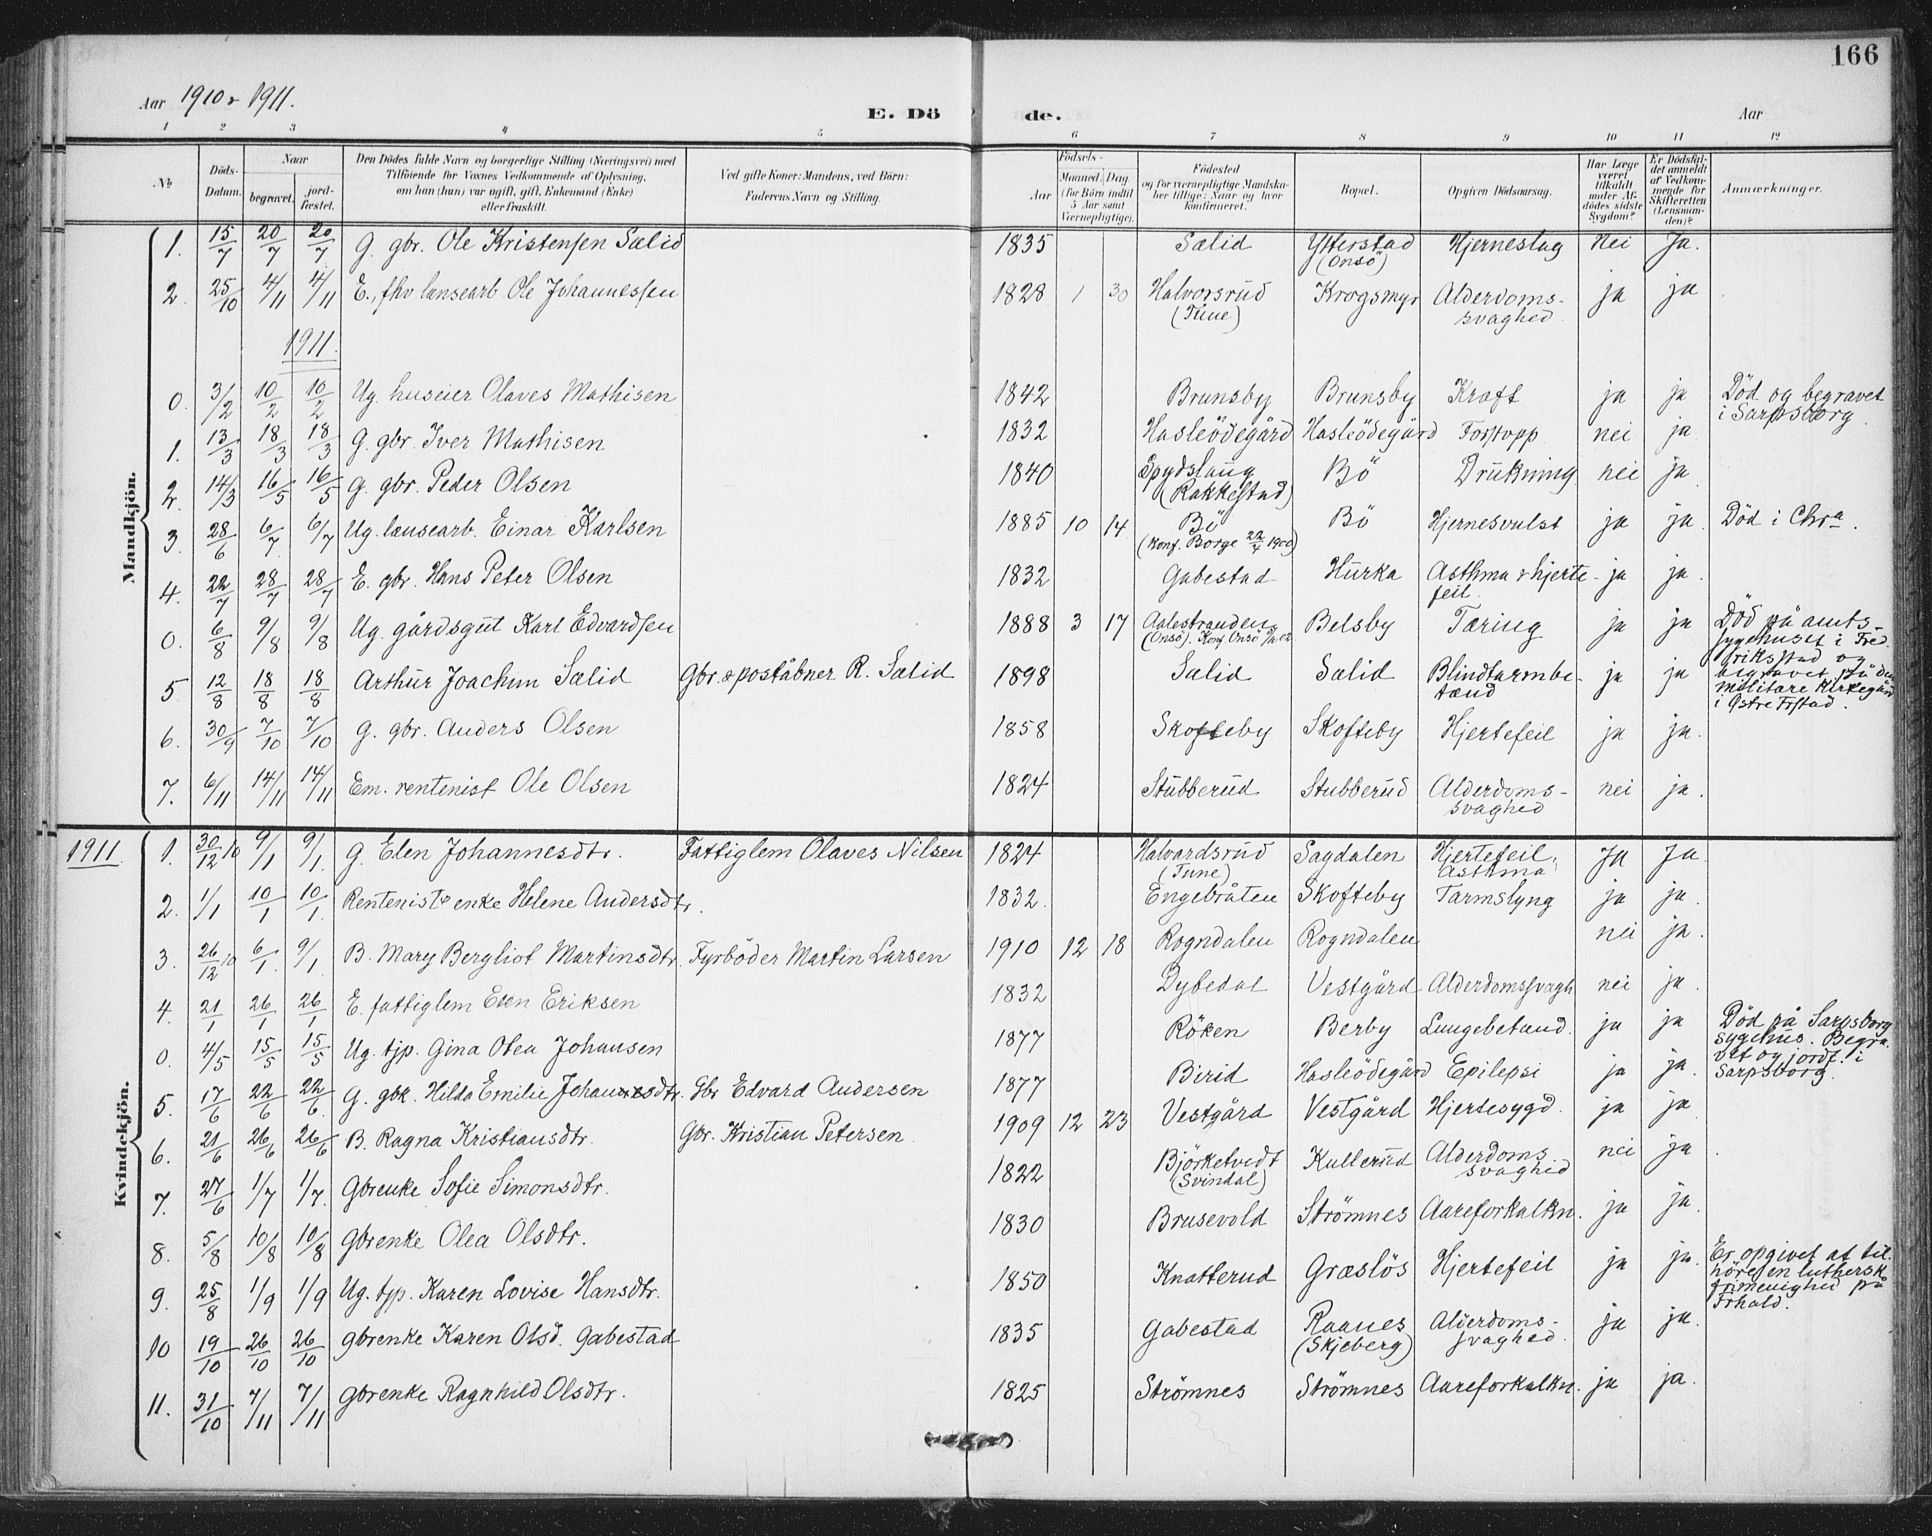 166
Aar 1910 & 1911.
E. Dö de.
Aar
1 2 3 4 5 6 7 8 9 10 11 12
No.
Döds-Datum.
Naar
begravet.
jord-fæstet.
Den Dödes fulde Navn og borgerlige Stilling (Næringsvei) med
Tilföiende for Voxnes Vedkommende af Oplysning,
om han (hun) var ugift, gift, Enkemand (Enke)
eller fraskilt.
Ved gifte Koner: Mandens, ved Börn:
Faderens Navn og Stilling.
Födsels-
Aar
Maaned. Dag.
(for Börn indtil
5 Aar samt
Værnepligtige).
Födested
og for værnepligtige Mandska-
ber tillige: Naar og hvor
konfirmeret.
Bopæl.
Opgiven Dödsaarsag.
Har Læge
været
tilkaldt
under Af-
dödes sidste
Sygdom?
Er Dödsfal-
det anmeldt
af Vedkom-
mende for
Skifteretten
(Lensman-
den)?
Anmærkninger.
Mandkjön.
1. 15/7 20/7 20/7 G. gbr. Ole Kristensen Sælid 1835 Sælid Ytterstad (Onsö) Hjerneslag Nei Ja.
2. 25/10 4/11 4/11 E., fhv lænsearb Ole Johannessen 1828 1 30 Halvorsrud (Tune) Krogsmyr Alderdoms-svaghed ja ja
1911.
0. 3/2 10/2 10/2 Ug. huseier Olaves Mathisen 1842 Brunsby Brunsby Kræft ja ja Död og begravet i Sarpsborg.
1. 13/3 18/3 18/3 G. gbr. Iver Mathisen 1832 Hasleödegård Hasleödegård Forstopp. nei ja
2. 14/3 16/5 16/5 G. gbr. Peder Olsen 1840 Spydslaug (Rakkestad) Bö Drukning nei ja
3. 28/6 6/7 6/7 Ug. lænsearb. Einar Karlsen 1885 10 14 Bö (Konf. Borge 22/4 1900) Bö Hjernesvulst ja ja. Död i Chra.
4. 22/7 28/7 28/7 E. gbr. Hans Peter Olsen 1832 Gabestad Hurka Asthma & hjerte-feil. ja ja.
0. 6/8 9/8 9/8 Ug. gårdsgut Karl Edvardsen 1888 3 17 Aalestranden (Onsö). Konf. Onsö Belsby Tæring ja ja Död på amts-sygehuset i Fredriksstad og begravet på den militære Kirkegård i Östre Frstad.
5 12/8 18/8 18/8 Arthur Joachim Sælid Gbr. & poståbner R. Sælid 1898 Sælid Sælid Blindtarmbe-tænd ja ja
6. 30/9 7/10 7/10 G. gbr. Anders Olsen 1858 Skofteby Skofteby Hjertefeil ja ja.
7. 6/11 14/11 14/11 Em. rentenist Ole Olsen 1824 Stubberud Stubberud Alderdoms-svaghed nei ja.
1911
Kvindekjön.
1. 30/12 10 9/1 9/1 G. Elen Johannesdtr. Fattiglem Olaves Nilsen 1824 Halvardsrud (Tune) Sagdalen Hjertefeil. Asthma Ja Ja.
2. 1/1 10/1 10/1 Rentenist enke Helene Andersdtr. 1832. Engebråten Skofteby Tarmslyng ja ja.
3. 26/12 10 6/1 9/1 B. Mary Bergliot Martinsdtr. Fyrböder Martin Larsen 1910 12 18 Rogndalen Rogndalen nei ja.
4. 21/1 26/1 26/1 E. fattiglem Elen Eriksen 1832 Dybedal Vestgård Alderdomssvagh nei ja.
0. 4/5 15/5 15/5 Ug. tjp. Gina Olea Johansen 1877 Röken Berby Lungebetænd. ja ja Död på Sarpsborg sygehus. Begra-vet og jordf. i Sarpsborg.
5. 17/6 22/6 22/6 G. gbk. Hilda Emilie Johannesdtr. Gbr Edvard Andersen 1877 Birid Hasleödegård Epilepsi ja ja.
6. 21/6 26/6 26/6 B. Ragna Kristiansdtr. Gbr. Kristian Petersen 1909 12 23 Vestgård Vestgård Hjertesygd. ja ja
7. 27/6 1/7 1/7. Gbrenke Sofie Simonsdtr. 1822 Björketvedt (Svindal) Kullerud Alderdoms svaghed nei ja
8. 5/8 10/8 10/8 Gbrenke Olea Olsdtr. 1830 Brusevold Strömnes Aareforkalkn. ja ja.
9. 25/8 1/9 1/9 Ug. tjp. Karen Lovise Hansdtr. 1850 Knatterud Græslös Hjertefeil ja ja. Er opgivet at til-höre en luthersk frimenighed på Frhald.
10 19/10 26/10 26/10 Gbrenke Karen Olsd. Gabestad 1835 Gabestad Raanes (Skjeberg) Alderdoms-svaghed. ja ja.
11. 31/10 7/11 7/11 Gbrenke Ragnhild Olsdtr. 1825 Strömnes Strömnes Aareforkalkn. ja ja.